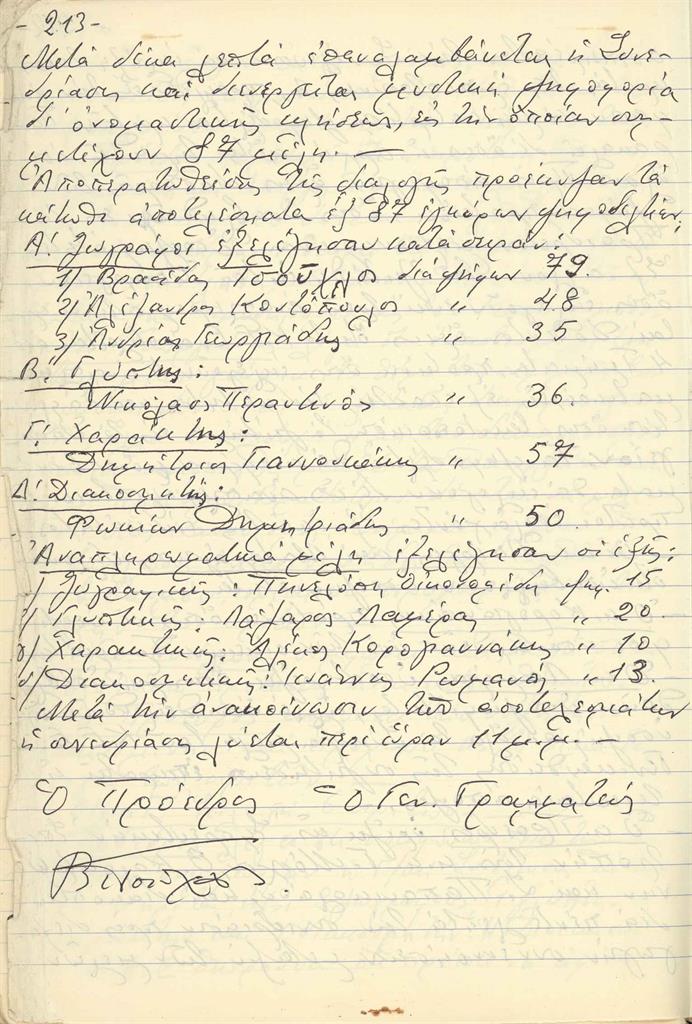 - 213 -
Μετά δέκα λεπτά ἐπαναλαμβάνεται ἡ Συνε-
δρίασις καί διενεργεῖται μυστική ψηφοφορία
δι' ὀνομαστικῆς κλήσεως, εἰς τήν ὁποίαν συμ-
μετέχουν 87 μέλη. —
Ἀποπερατωθείσης τῆς διαλογῆς προέκυψαν τά
κάτωθι ἀποτελέσματα ἐξ 87 ἐγκύρων ψηφοδελτίων:
Α! Ζωγράφοι ἐξελέγησαν κατά σειράν:
1) Βρασίδας Τσούχλος διά ψήφων 79.
2) Ἀλέξανδρος Κοντόπουλος " 48
3) Ἀνδρέας Γεωργιάδης " 35
Β! Γλύπτης:
Νικόλαος Περαντινός " 36.
Γ! Χαράκτης:
Δημήτριος Γιαννουκάκης " 57
Δ! Διακοσμητής:
Φωκίων Δημητριάδης " 50.
Ἀναπληρωματικά μέλη ἐξελέγησαν οἱ ἑξῆς:
α) Ζωγραφικῆς: Πηνελόπη Οἰκονομίδη ψηφ. 15
) Γλυπτικῆς: Λάζαρος Λαμέρας " 20.
) Χαρακτικῆς: Ἀλέκος Κορογιαννάκης " 10
) Διακοσμητικῆς: Ἰωάννης Ρωμανός " 13.
Μετά τήν ἀνακοίνωσιν τῶν ἀποτελεσμάτων
ἡ συνεδρίασις λύεται περί ὥραν 11 μ.μ. —
Ὁ Πρόεδρος Ὁ Γεν. Γραμματεύς
Β Τσούχλος.